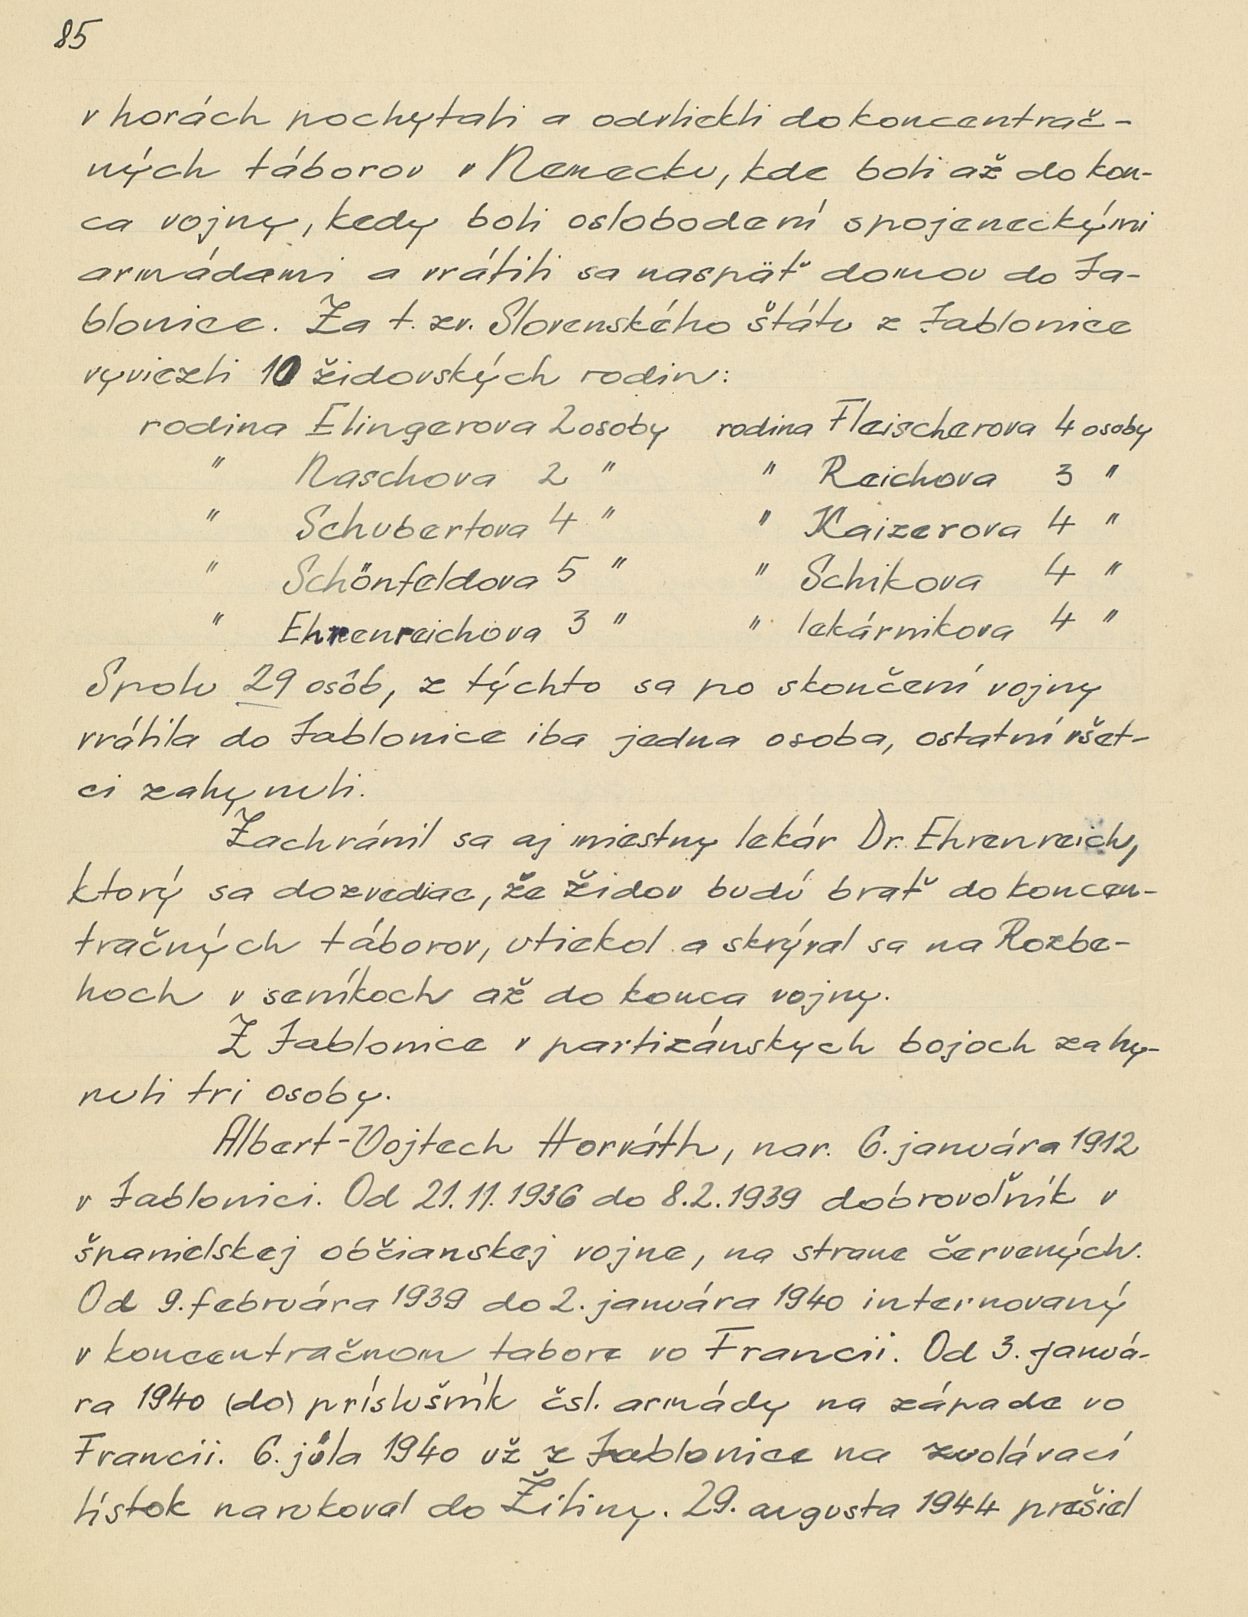 85
v horách pochytali a odvliekli do koncentrač-
ných táborov v Nemecku, kde boli až do kon-
ca vojny, kedy boli oslobodení spojeneckými
armádami a vrátili sa naspäť domov do Ja-
blonice. Za t. zv. Slovenského štátu z Jablonice
vyviezli 10 židovských rodín:
rodina Elingerova 2 osoby rodina Fleischerova 4 osoby
" Naschova 2 " " Reichova 3 "
" Schubertova 4 " " Kaizerova 4 "
" Schönfeldova 5 " " Schikova 4 "
" Ehrenreichova 3 " " lekárnikova 4 "
Spolu 29 osôb, z týchto sa po skončení vojny
vrátila do Jablonice iba jedna osoba, ostatní všet-
ci zahynuli.
Zachránil sa aj miestny lekár Dr. Ehrenreich,
ktorý sa dozvediac, že židov budú brať do koncen-
tračných táborov, utiekol a skrýval sa na Rozbe-
hoch v seníkoch až do konca vojny.
Z Jablonice v partizánskych bojoch zahy-
nuli tri osoby.
Albert-Vojtech Horváth, nar. 6. januára 1912
v Jablonici. Od 21. 11. 1936 do 8. 2. 1939 dobrovoľník v
španielskej občianskej vojne, na strane červených.
Od 9. februára 1939 do 2. januára 1940 internovaný
v koncentračnom tabore vo Francii. Od 3. januá-
ra 1940 (do) príslušník čsl. armády na západe vo
Francii. 6. júla 1940 už z Jablonice na zvolávací
lístok narukoval do Žiliny. 29. augusta 1944 prešiel